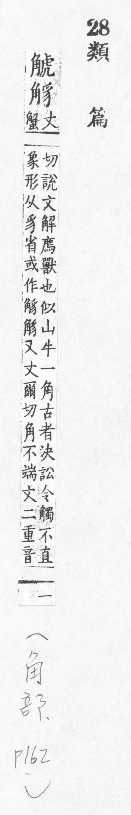 28
類篇
觿豸 丈蟹
切說文解廌獸也似山牛一角古者決訟令觸不直
象形从豸省或作觧觧又丈爾切角不端文二重音一
(角部.
P162)